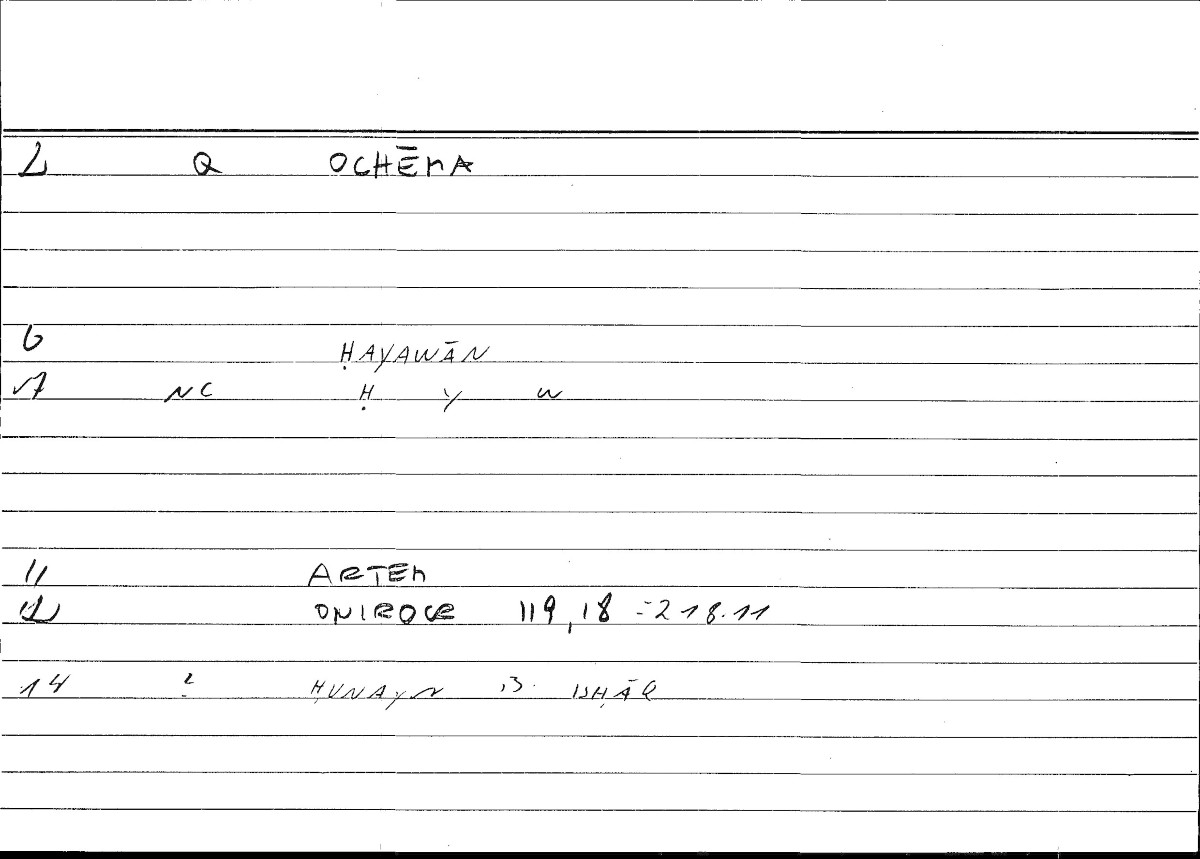 2 Q OCHĒMA
6 ḤAYAWĀN
7 NC Ḥ Y W
11 ARTEM
12 ONIROCR 119,18 = 218.11
14 2 ḤUNAYN B. ISḤĀQ